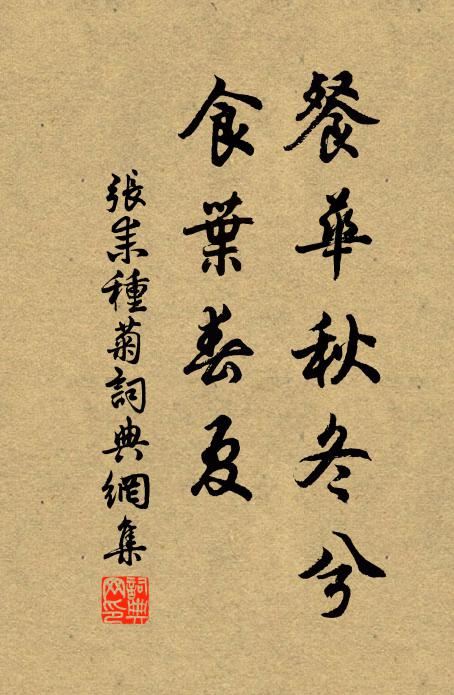 餐華秋冬兮
食葉春夏
張耒種菊詞典網集
詞典网印